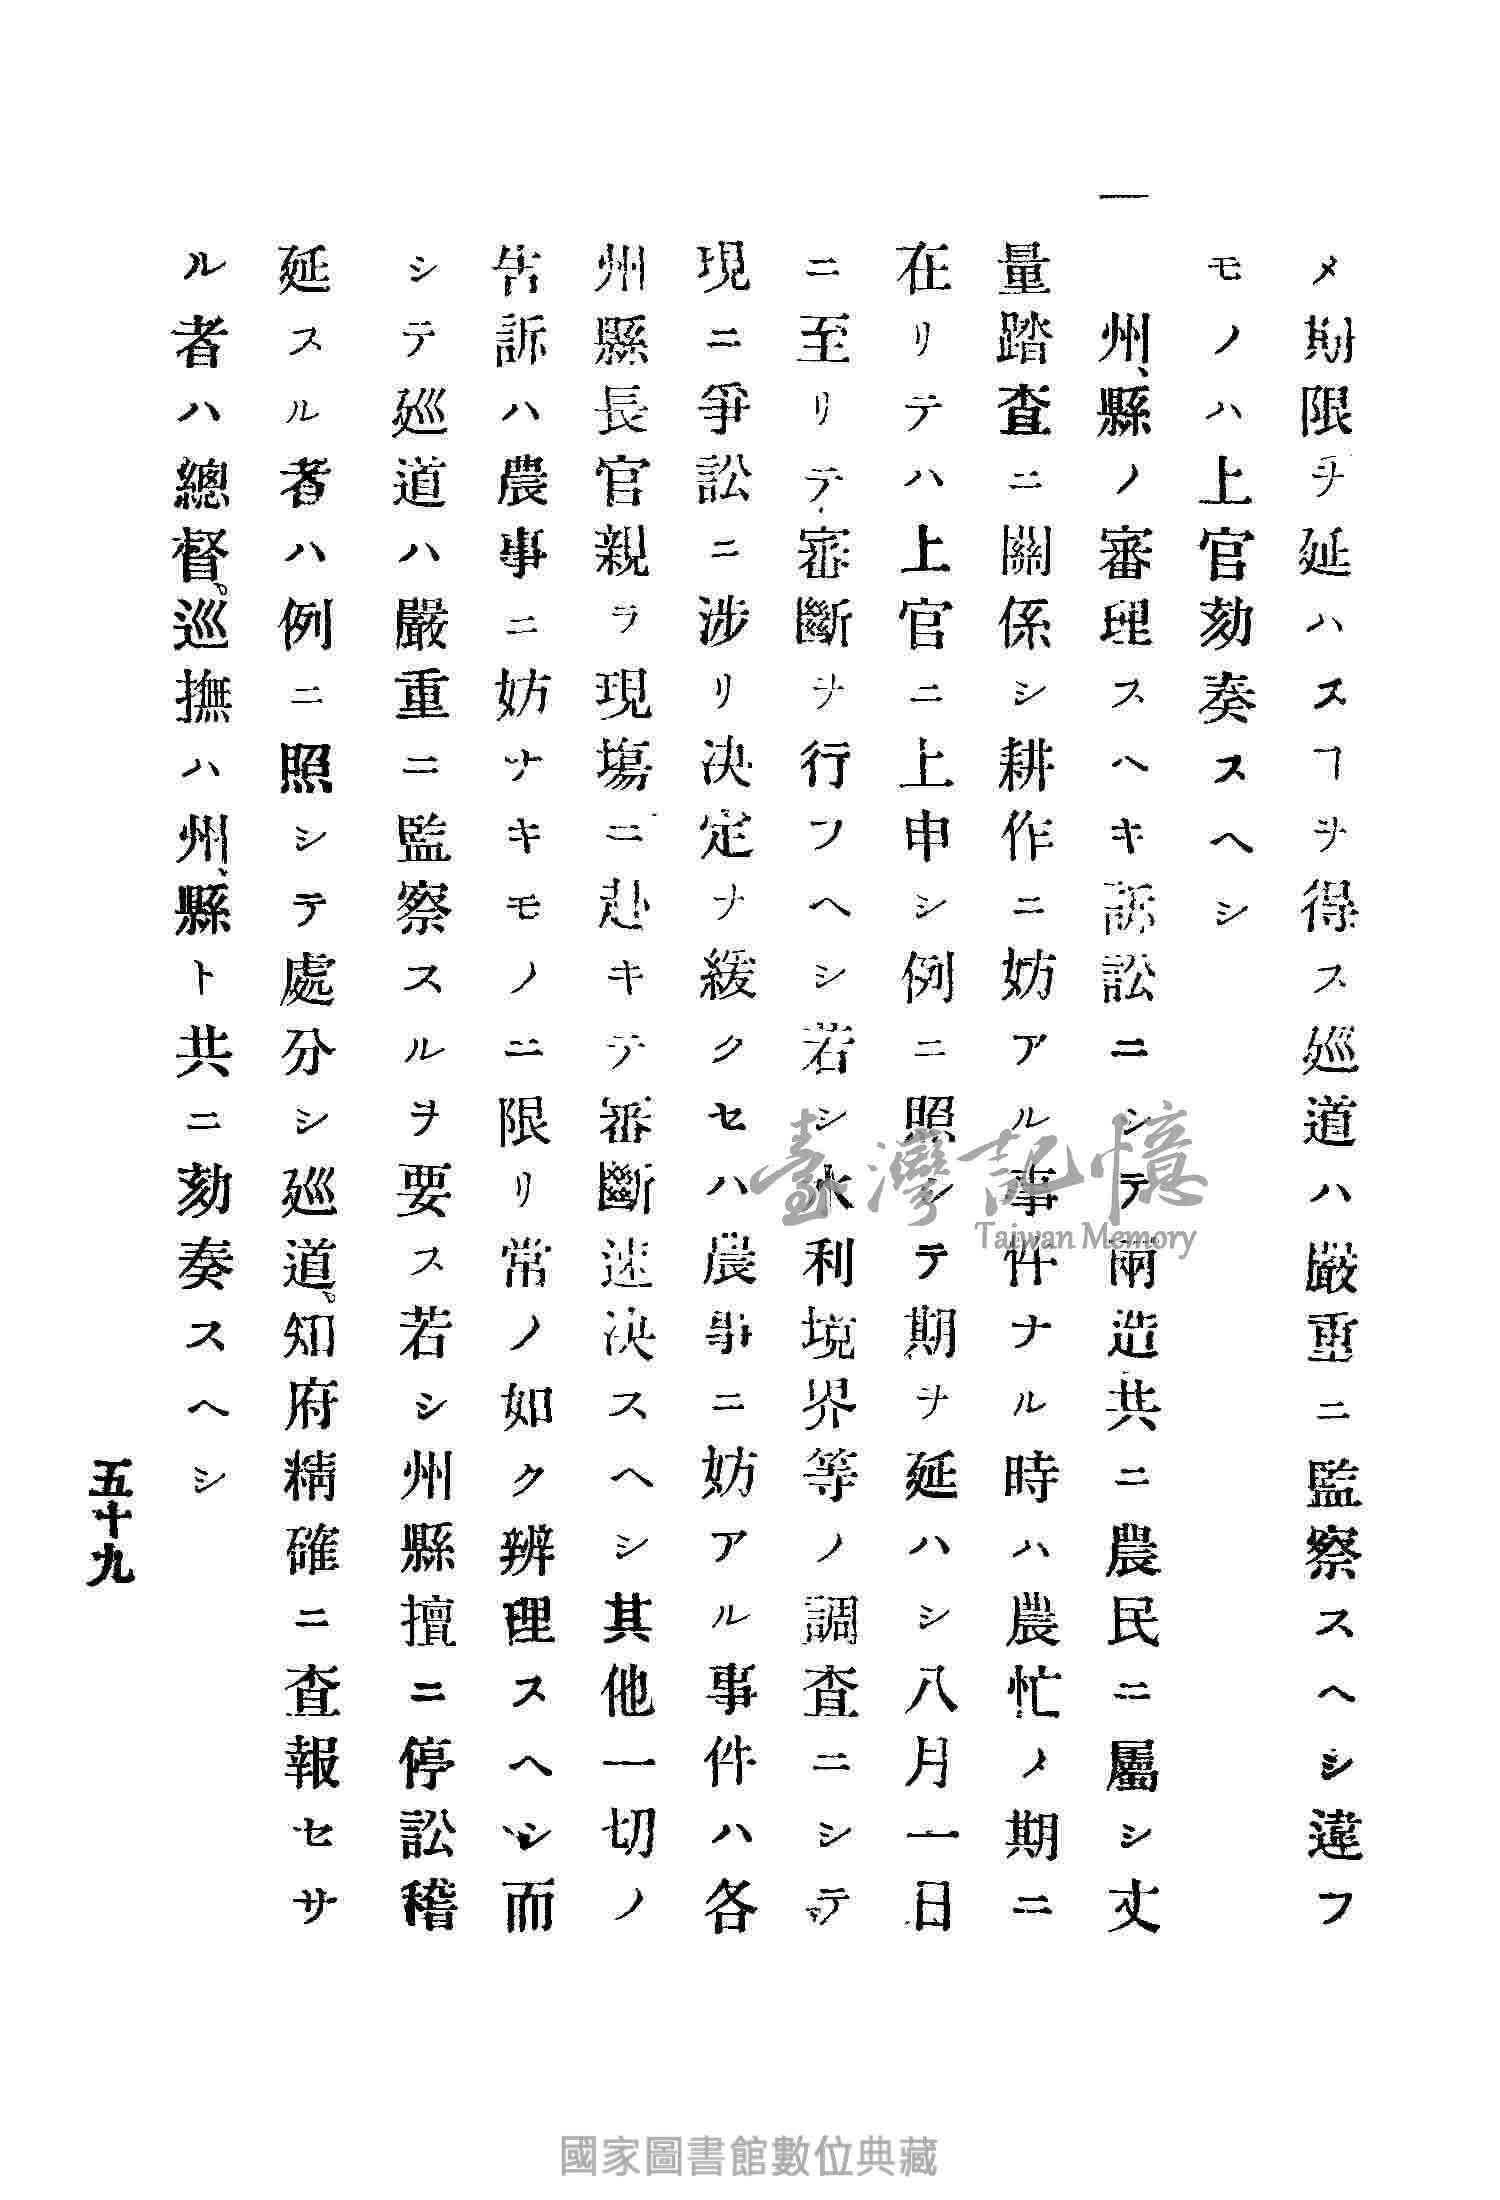 メ期限ヲ延ハスヿヲ得ス廵道ハ嚴重ニ監察スヘシ違フ
モノハ上官劾奏スヘシ
一
州、縣ノ審理スヘキ訴訟ニシテ兩造共ニ農民ニ屬シ丈
量踏査ニ關係シ耕作ニ妨アル事件ナル時ハ農忙ノ期ニ
在リテハ上官ニ上申シ例ニ照シテ期ヲ延ハシ八月一日
ニ至リテ審斷ヲ行フヘシ若シ水利境界等ノ調査ニシテ
現ニ爭訟ニ涉リ决定ヲ緩クセハ農事ニ妨アル事件ハ各
州縣長官親ラ現塲ニ赴キテ審斷速决スヘシ其他一切ノ
告訴ハ農事ニ妨ナキモノニ限リ常ノ如ク辨理スヘシ而
シテ廵道ハ嚴重ニ監察スルヲ要ス若シ州縣擅ニ停訟稽
延スル者ハ例ニ照シテ處分シ廵道。知府精確ニ査報セサ
ル者ハ總督。巡撫ハ州、縣ト共ニ劾奏スヘシ
五十九
臺灣記憶
Taiwan Memory
國家圖書館數位典藏